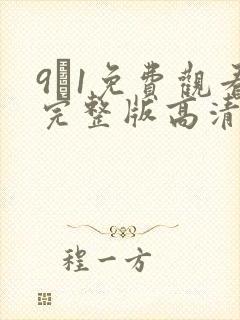 9 1免費觀看
完整版高清
程一方